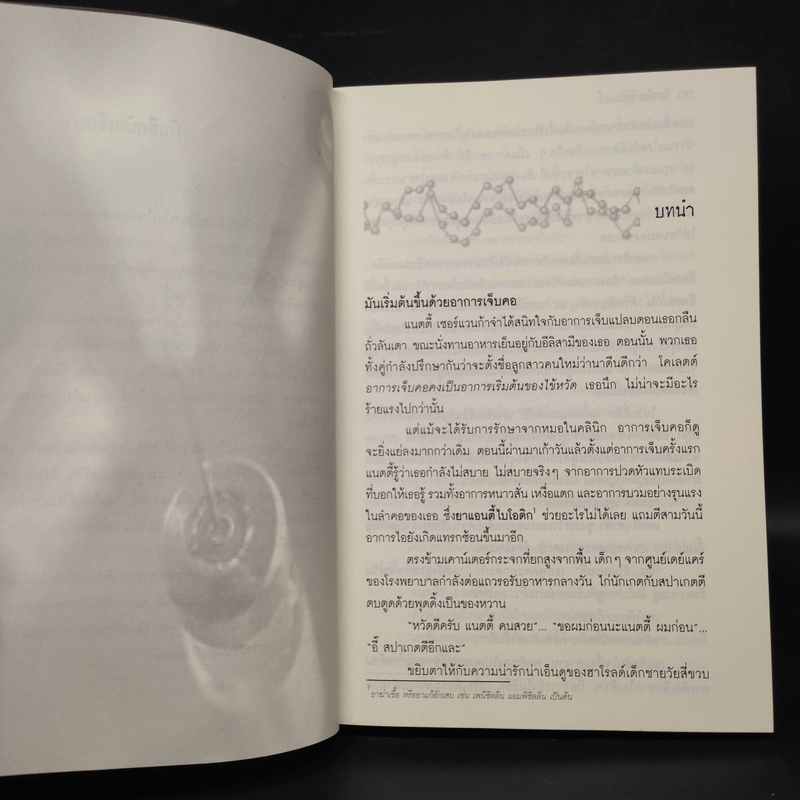 บทนำ
มันเริ่มต้นขึ้นด้วยอาการเจ็บคอ
แนตตี้ เซอร์แวนก้าจำได้สนิทใจกับอาการเจ็บแปลบตอนเธอกลืน
ถั่วลันเตา ขณะนั่งทานอาหารเย็นอยู่กับอีลิสามีของเธอ ตอนนั้น พวกเธอ
ทั้งคู่กำลังปรึกษากันว่าจะตั้งชื่อลูกสาวคนใหม่ว่านาดีนดีกว่า โคเลตต์
อาการเจ็บคอคงเป็นอาการเริ่มต้นของไข้หวัด เธอนึก ไม่น่าจะมีอะไร
ร้ายแรงไปกว่านั้น
แต่แม้จะได้รับการรักษาจากหมอในคลินิก อาการเจ็บคอก็ดู
จะยิ่งแย่ลงมากกว่าเดิม ตอนนี้ผ่านมาเก้าวันแล้วตั้งแต่อาการเจ็บครั้งแรก
แนตตี้รู้ว่าเธอกำลังไม่สบาย ไม่สบายจริงๆ จากอาการปวดหัวแทบระเบิด
ที่บอกให้เธอรู้ รวมทั้งอาการหนาวสั่น เหงื่อแตก และอาการบวมอย่างรุนแรง
ในลำคอของเธอ ซึ่งยาแอนตี้ไบโอติก¹ ช่วยอะไรไม่ได้เลย แถมตีสามวันนี้
อาการไอยังเกิดแทรกซ้อนขึ้นมาอีก
ตรงข้ามเคาน์เตอร์กระจกที่ยกสูงจากพื้น เด็กๆ จากศูนย์เดย์แคร์
ของโรงพยาบาลกำลังต่อแถวรอรับอาหารกลางวัน ไก่นักเกตกับสปาเกตตี
ตบตูดด้วยพุดดิ้งเป็นของหวาน
"หวัดดีครับ แนตตี้ คนสวย"... "ขอผมก่อนนะแนตตี้ ผมก่อน"...
"อี๋ สปาเกตตีอีกและ"
ขยิบตาให้กับความน่ารักน่าเอ็นดูของฮาโรลด์เด็กชายวัยสี่ขวบ
¹ ยาฆ่าเชื้อ หรือยาแก้อักเสบ เช่น เพนิซีลลิน แอมพิซิลลิน เป็นต้น